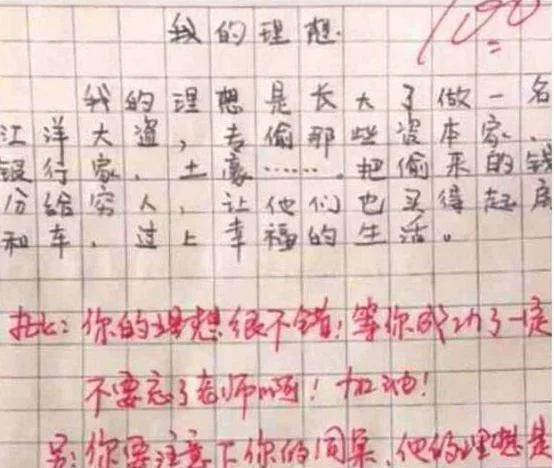 我的理想
100
我的理想是长大了做一名
江洋大盗,专偷那些资本家、
银行家、土豪……把偷来的钱
分给穷人,让他们也买得起房
和车,过上幸福的生活。
批:你的理想很不错!等你成功了一定
不要忘了老师啊!加油!
另:你要注意下你的同桌,他的理想是